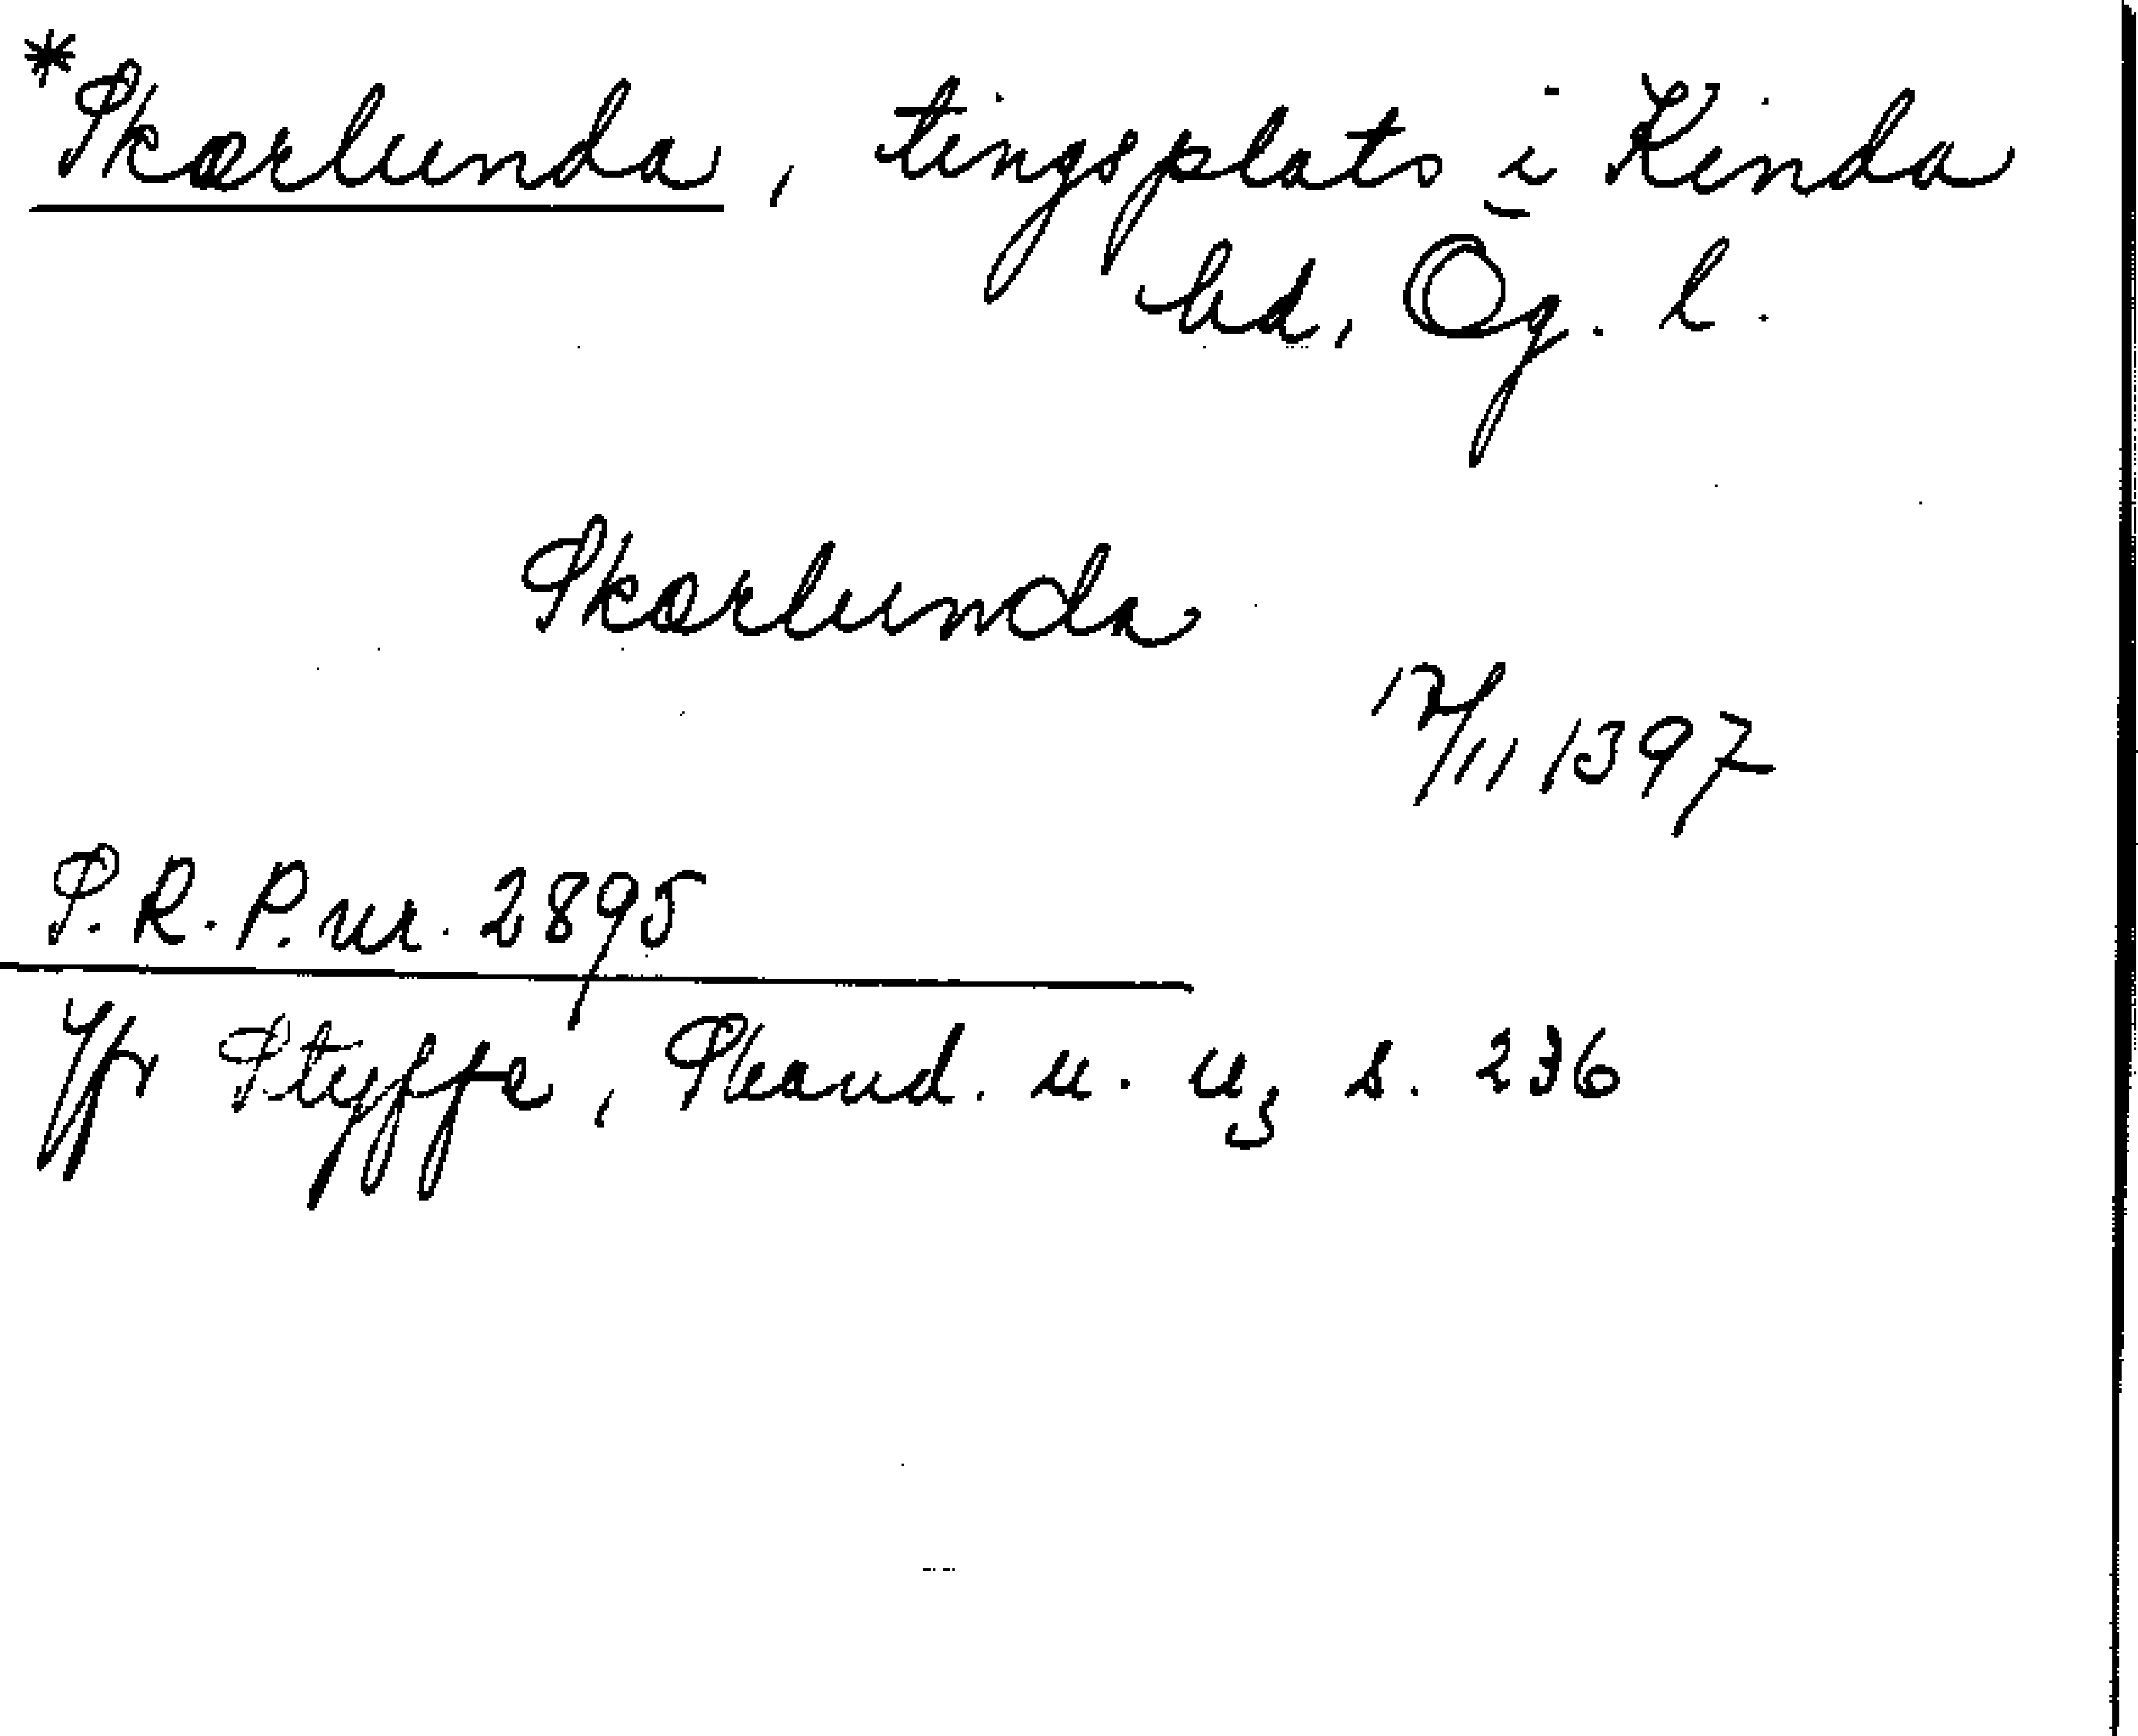 *Skærlunda, tingsplats i Kinda
hd, Ög. l.
Skærlunda
12/11 1397
S.R.P. nr. 2895
Jfr Styffe, Skand. u. u3 s. 236